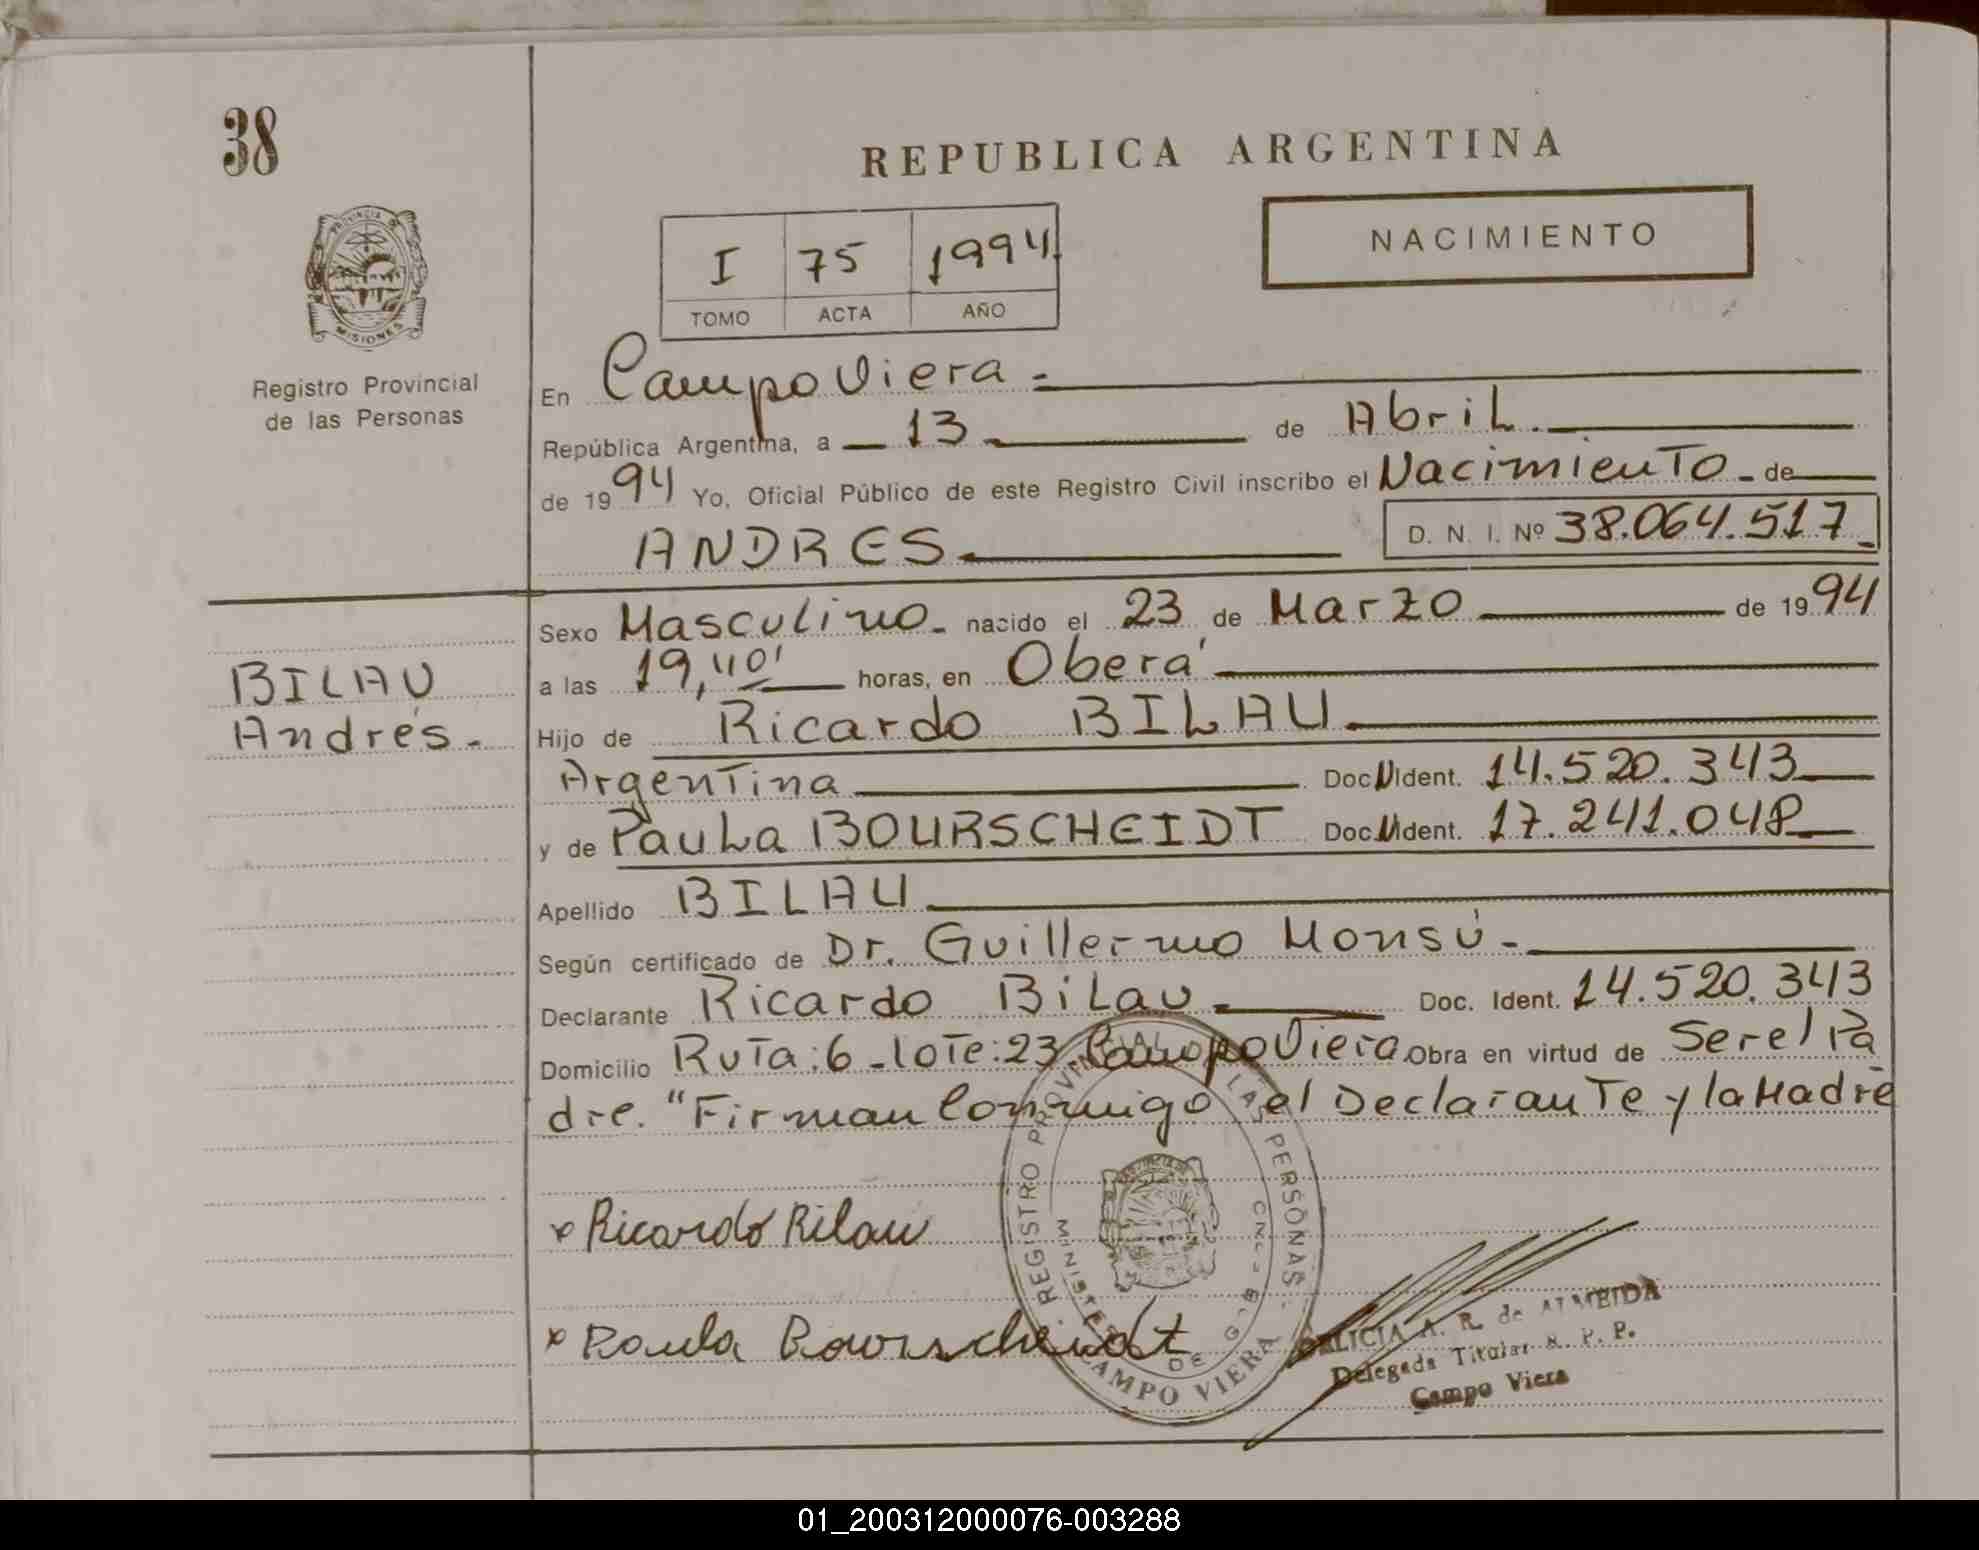 38
REPUBLICA ARGENTINA
NACIMIENTO
I 75 1994
TOMO ACTA AÑO
PROVINCIA DE
MISIONES
Registro Provincial
de las Personas
En Campo Viera.-
República Argentina, a 13 de Abril.
de 1994 Yo, Oficial Público de este Registro Civil inscribo el Nacimiento - de
ANDRES. D. N. I. Nº 38.064.517
Sexo Masculino- nacido el 23 de Marzo de 1994
BILAU
Andrés.-
a las 19,40' horas, en Oberá
Hijo de Ricardo BILAU.
Argentina Doc. Ident. 14.520.343
y de Paula BOURSCHEIDT Doc. Ident. 17.241.048
Apellido BILAU
Según certificado de Dr. Guillermo Monsú.-
Declarante Ricardo Bilau Doc. Ident. 14.520.343
Domicilio Ruta:6-lote:23 Campo Viera Obra en virtud de Ser el Pa
dre. "Firman Conmigo el Declarante y la Madre
x Ricardo Bilau
x Paula Bourscheidt
REGISTRO PROVINCIAL DE LAS PERSONAS
CAMPO VIERA
A. R. de ALMEIDA
Delegada Titular R. P. P.
Campo Viera
01_200312000076-003288